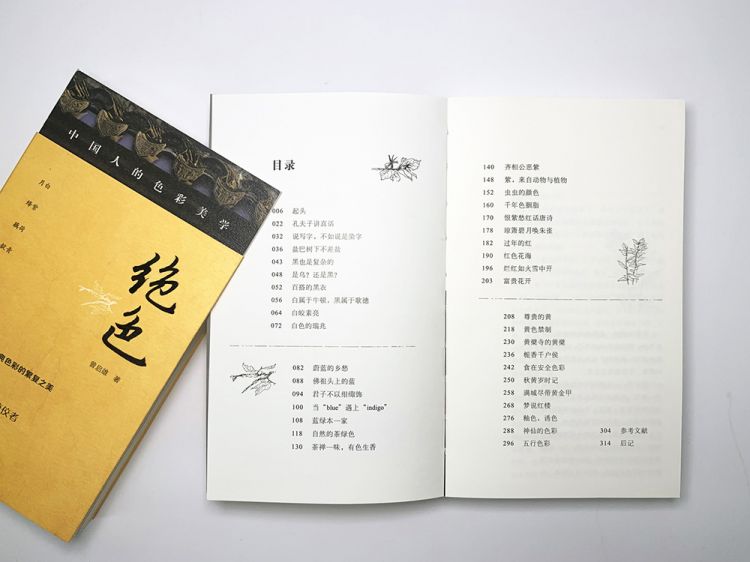 中国人的色彩美学
月白
绛紫
藕荷
靛青
绝色
曾启雄 著
典色彩的繁复之美
目录
006 起头
022 孔夫子讲真话
032 说写字,不如说是染字
036 盐巴树下不差盐
043 黑也是复杂的
048 是乌?还是黑?
052 百搭的黑衣
056 白属于牛顿,黑属于歌德
064 白皎素亮
072 白色的瑞兆
082 蔚蓝的乡愁
088 佛祖头上的蓝
094 君子不以绀緅饰
100 当“blue”遇上“indigo”
108 蓝绿本一家
118 自然的茶绿色
130 茶禅一味,有色生香
140 齐桓公恶紫
148 紫,来自动物与植物
152 虫虫的颜色
160 千年色胭脂
170 恨紫愁红话唐诗
178 琼萧碧月唤朱雀
182 过年的红
190 红色花海
196 烂红如火雪中开
203 富贵花开
208 尊贵的黄
218 黄色禁制
230 黄檗寺的黄檗
236 栀香千户侯
242 食在安全色彩
250 秋黄岁时记
258 满城尽带黄金甲
268 梦说红楼
276 釉色、诱色
288 神仙的色彩
296 五行色彩
304 参考文献
314 后记